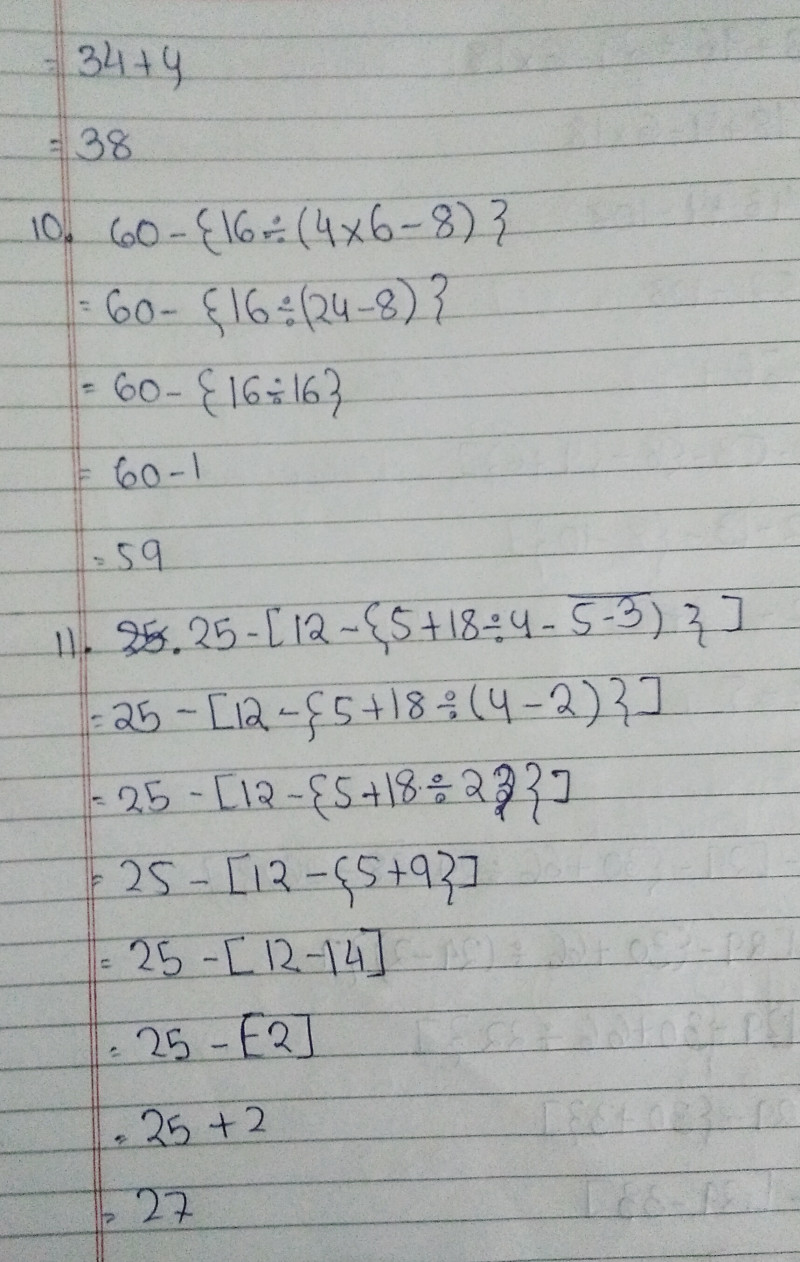 = 34+4
= 38
10. 60-{16÷(4×6-8)}
= 60-{16÷(24-8)}
= 60-{16÷16}
= 60-1
= 59
11. 25-[12-{5+18÷4-5-3)}]
= 25-[12-{5+18÷(4-2)}]
= 25-[12-{5+18÷2}]
= 25-[12-{5+9}]
= 25-[12-14]
= 25-[-2]
= 25+2
= 27